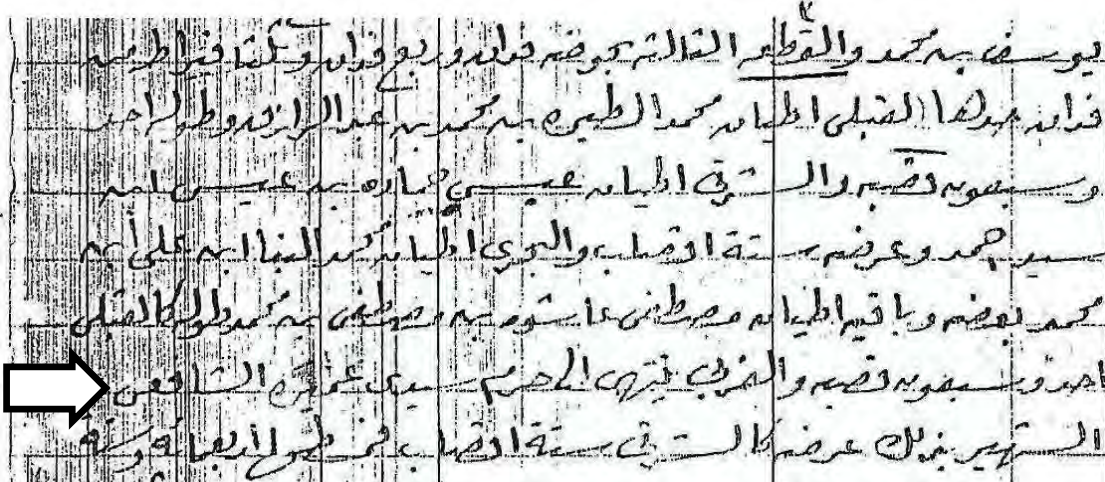 يوسف بن محمد والقطعه الثالثه بحوضه فدان وربع فدان وثلثا قيراط من
فدان حدها القبلى اطيان محمد الطيره بن محمد بن عبد الرازق وطوله احد
وسبعون قصبه والشرقى اطيان عيسى حماده بن عيسى ابن
سيد احمد وعرضه ستة اقصاب والبحرى اطيان محمد البنا ابن على ابن
محمد بعضه وباقيه اطيان مصطفى عاشور بن مصطفى بن محمد وطوله كالقبلى
احد وسبعون قصبه والغربى ينتهى الى حرم سيدى الشافعى
الشهير بذلك عرضه كالشرقى ستة اقصاب اربعمائه وستة